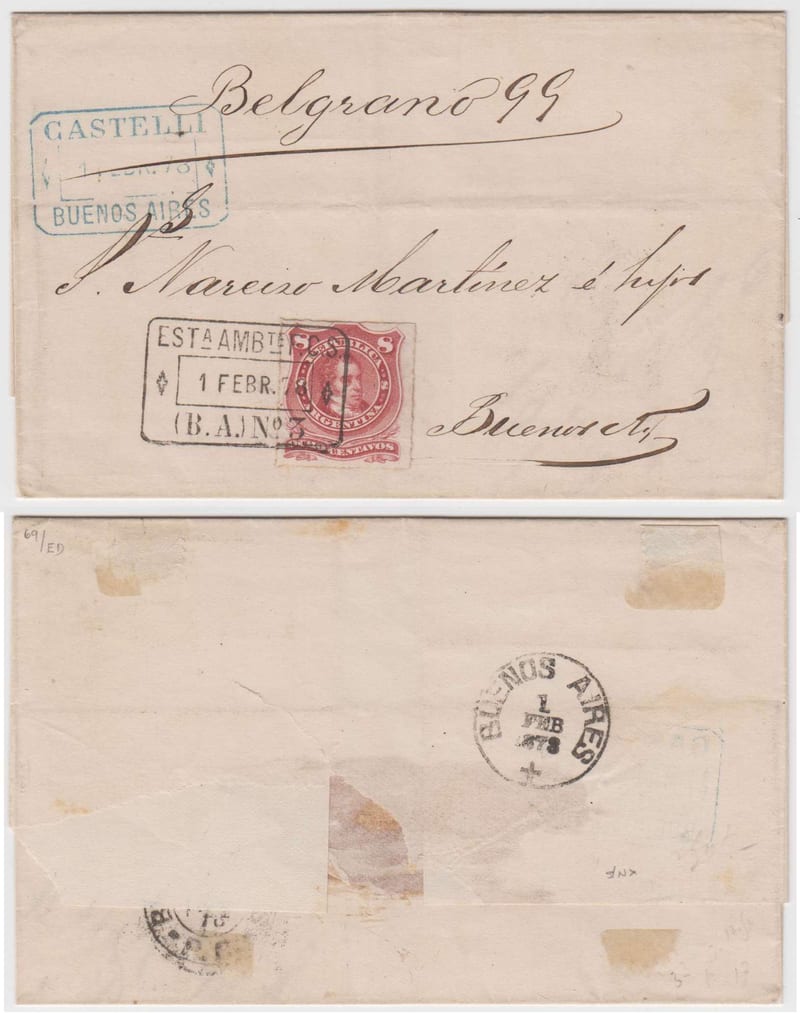 Belgrano 99
CASTELLI
1 FEBR. 78
BUENOS AIRES
Sres
S. Narciso Martínez é hijos
ESTA AMBTE F.C.S.
1 FEBR. 78
(B.A.) No 3
8 8
REPUBLICA
ARGENTINA
CENTAVOS
Buenos As
69/ED
BUENOS AIRES
1
FEB
1878